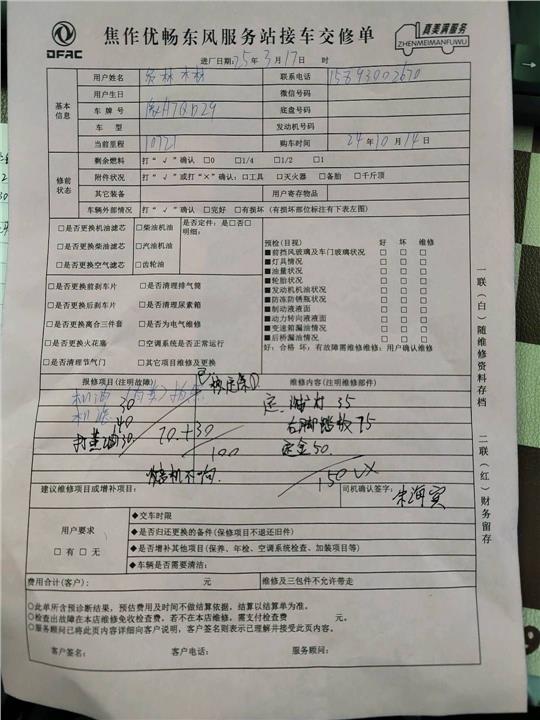 DFAC
焦作优畅东风服务站接车交修单
真美满服务
ZHENMEIMANFUWU
进厂日期:25年3月17日 时
基本信息
用户姓名 联系电话
用户生日 微信号码
车牌号 底盘号码
车型 发动机号码
当前里程 10721 购车时间 24年10月14日
修前状态
剩余燃料 打“√”确认 □0 □1/4 □1/2 □1
附件状况 打“√”或打“×”确认:□工具 □灭火器 □备胎 □千斤顶
其它装备 用户寄存物品
车辆外部情况 打“√”确认 □完好 □有损坏(有损坏部位标注有下表左图)
□是否更换机油滤芯 □柴油机油 是否定件:是□否□
明细:
□是否更换柴油滤芯 □汽油机油
□是否更换空气滤芯 □齿轮油
□是否更换前刹车片 □是否清理排气筒
□是否更换后刹车片 □是否清理尿素箱
□是否更换离合三件套 □是否为电气维修
□是否更换火花塞 □空调系统是否正常运行
□是否清理节气门 □其它项目维修及更换
预检(目视) 好 坏 维修
■前挡风玻璃及车门玻璃状况 □ □ □
■灯具情况 □ □ □
■油量状况 □ □ □
■轮胎状况 □ □ □
■发动机机油状况 □ □ □
■防冻防锈瓶状况 □ □ □
■制动液液面 □ □ □
■动力转向液液面 □ □ □
■变速箱漏油情况 □ □ □
■后桥漏油情况 □ □ □
好:合格 坏:有故障需维修维修:用户确认维修
报修项目(注明故障) 维修内容(注明维修部件)
机油
30
机滤
40
打黄油30
70+30
100
35
右脚踏板 75
定金50
150
建议维修项目或增补项目: 司机确认签字:
用户要求
□有 □无
◆交车时限
◆是否归还更换的备件(保修项目不退还旧件)
◆是否增补其他项目(保养、年检、空调系统检查、加装项目等)
◆车辆是否需要清洁:
费用合计(客户): 元 维修及三包件不允许带走
○此单所含预诊断结果,预估费用及时间不做结算依据,结算以结算单为准。
○检查出故障在本店维修免收检查费,若不在本店维修,需支付检查费 元。
○服务顾问已将此页内容详细向客户说明,客户签名则表示已理解并接受此页内容。
客户签名: 客户电话: 服务顾问:
一联(白)随维修资料存档
二联(红)财务留存